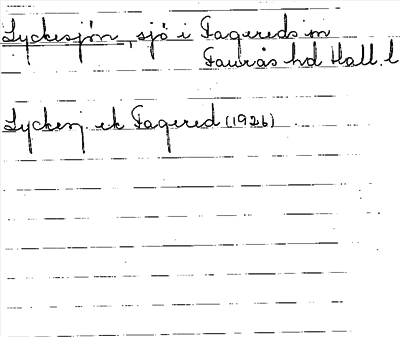 Lyckesjön, sjö i Fagereds sn
Faurås hd Hall. l
Lycken ek Fagered (1926)